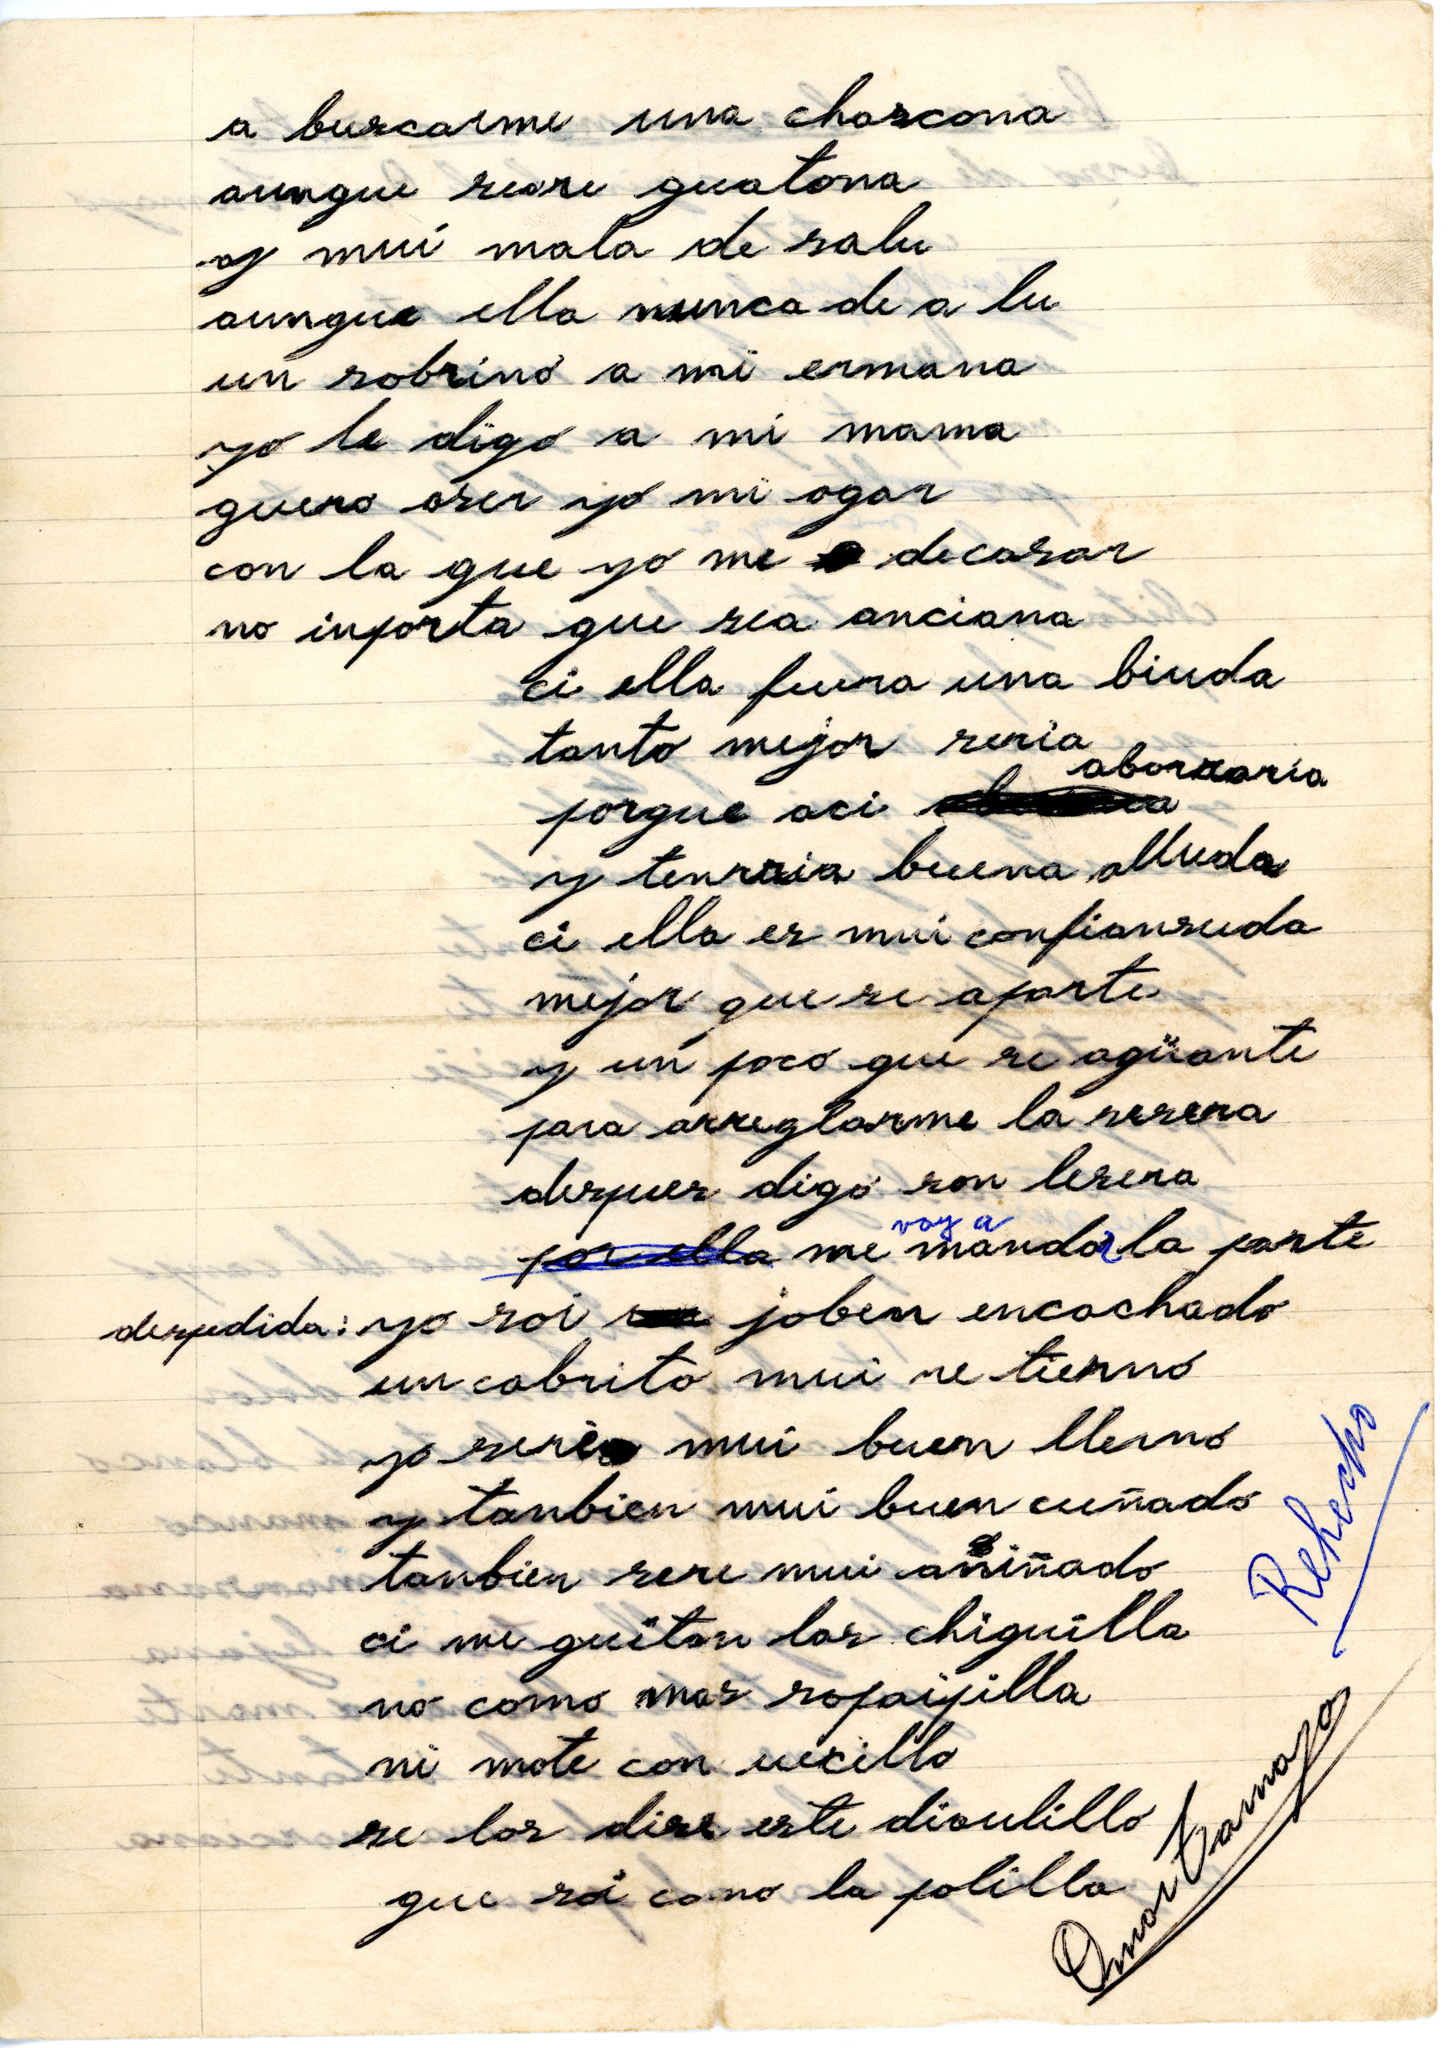 a buscarme una chascona
aunque seare guatona
y mui mala de salu
aunque ella nunca de a lu
un sobrino a mi ermana
yo le digo a mi mama
quero aser yo mi ogar
con la que yo me decasar
no inporta que sea anciana
ci ella fuera una biuda
tanto mejor seria
aborraria
porque aci
y tenrria buena alluda
ci ella es mui confiansuda
mejor que se aparte
y un poco que se agüante
para arreglarme la sesera
despues digo son lesera
voy a
por ella me mandar la parte
despedida: yo soi joben encachado
un cabrito mui re tierno
yo sere mui buen llerno
y tanbien mui buen cuñado
tanbien sere mui aniñado
ci me quitan las chiquilla
no como mas sopaipilla
ni mote con uecillo
se los dise este diaulillo
que soi como la polilla
Rehecho
Omar Tamayo